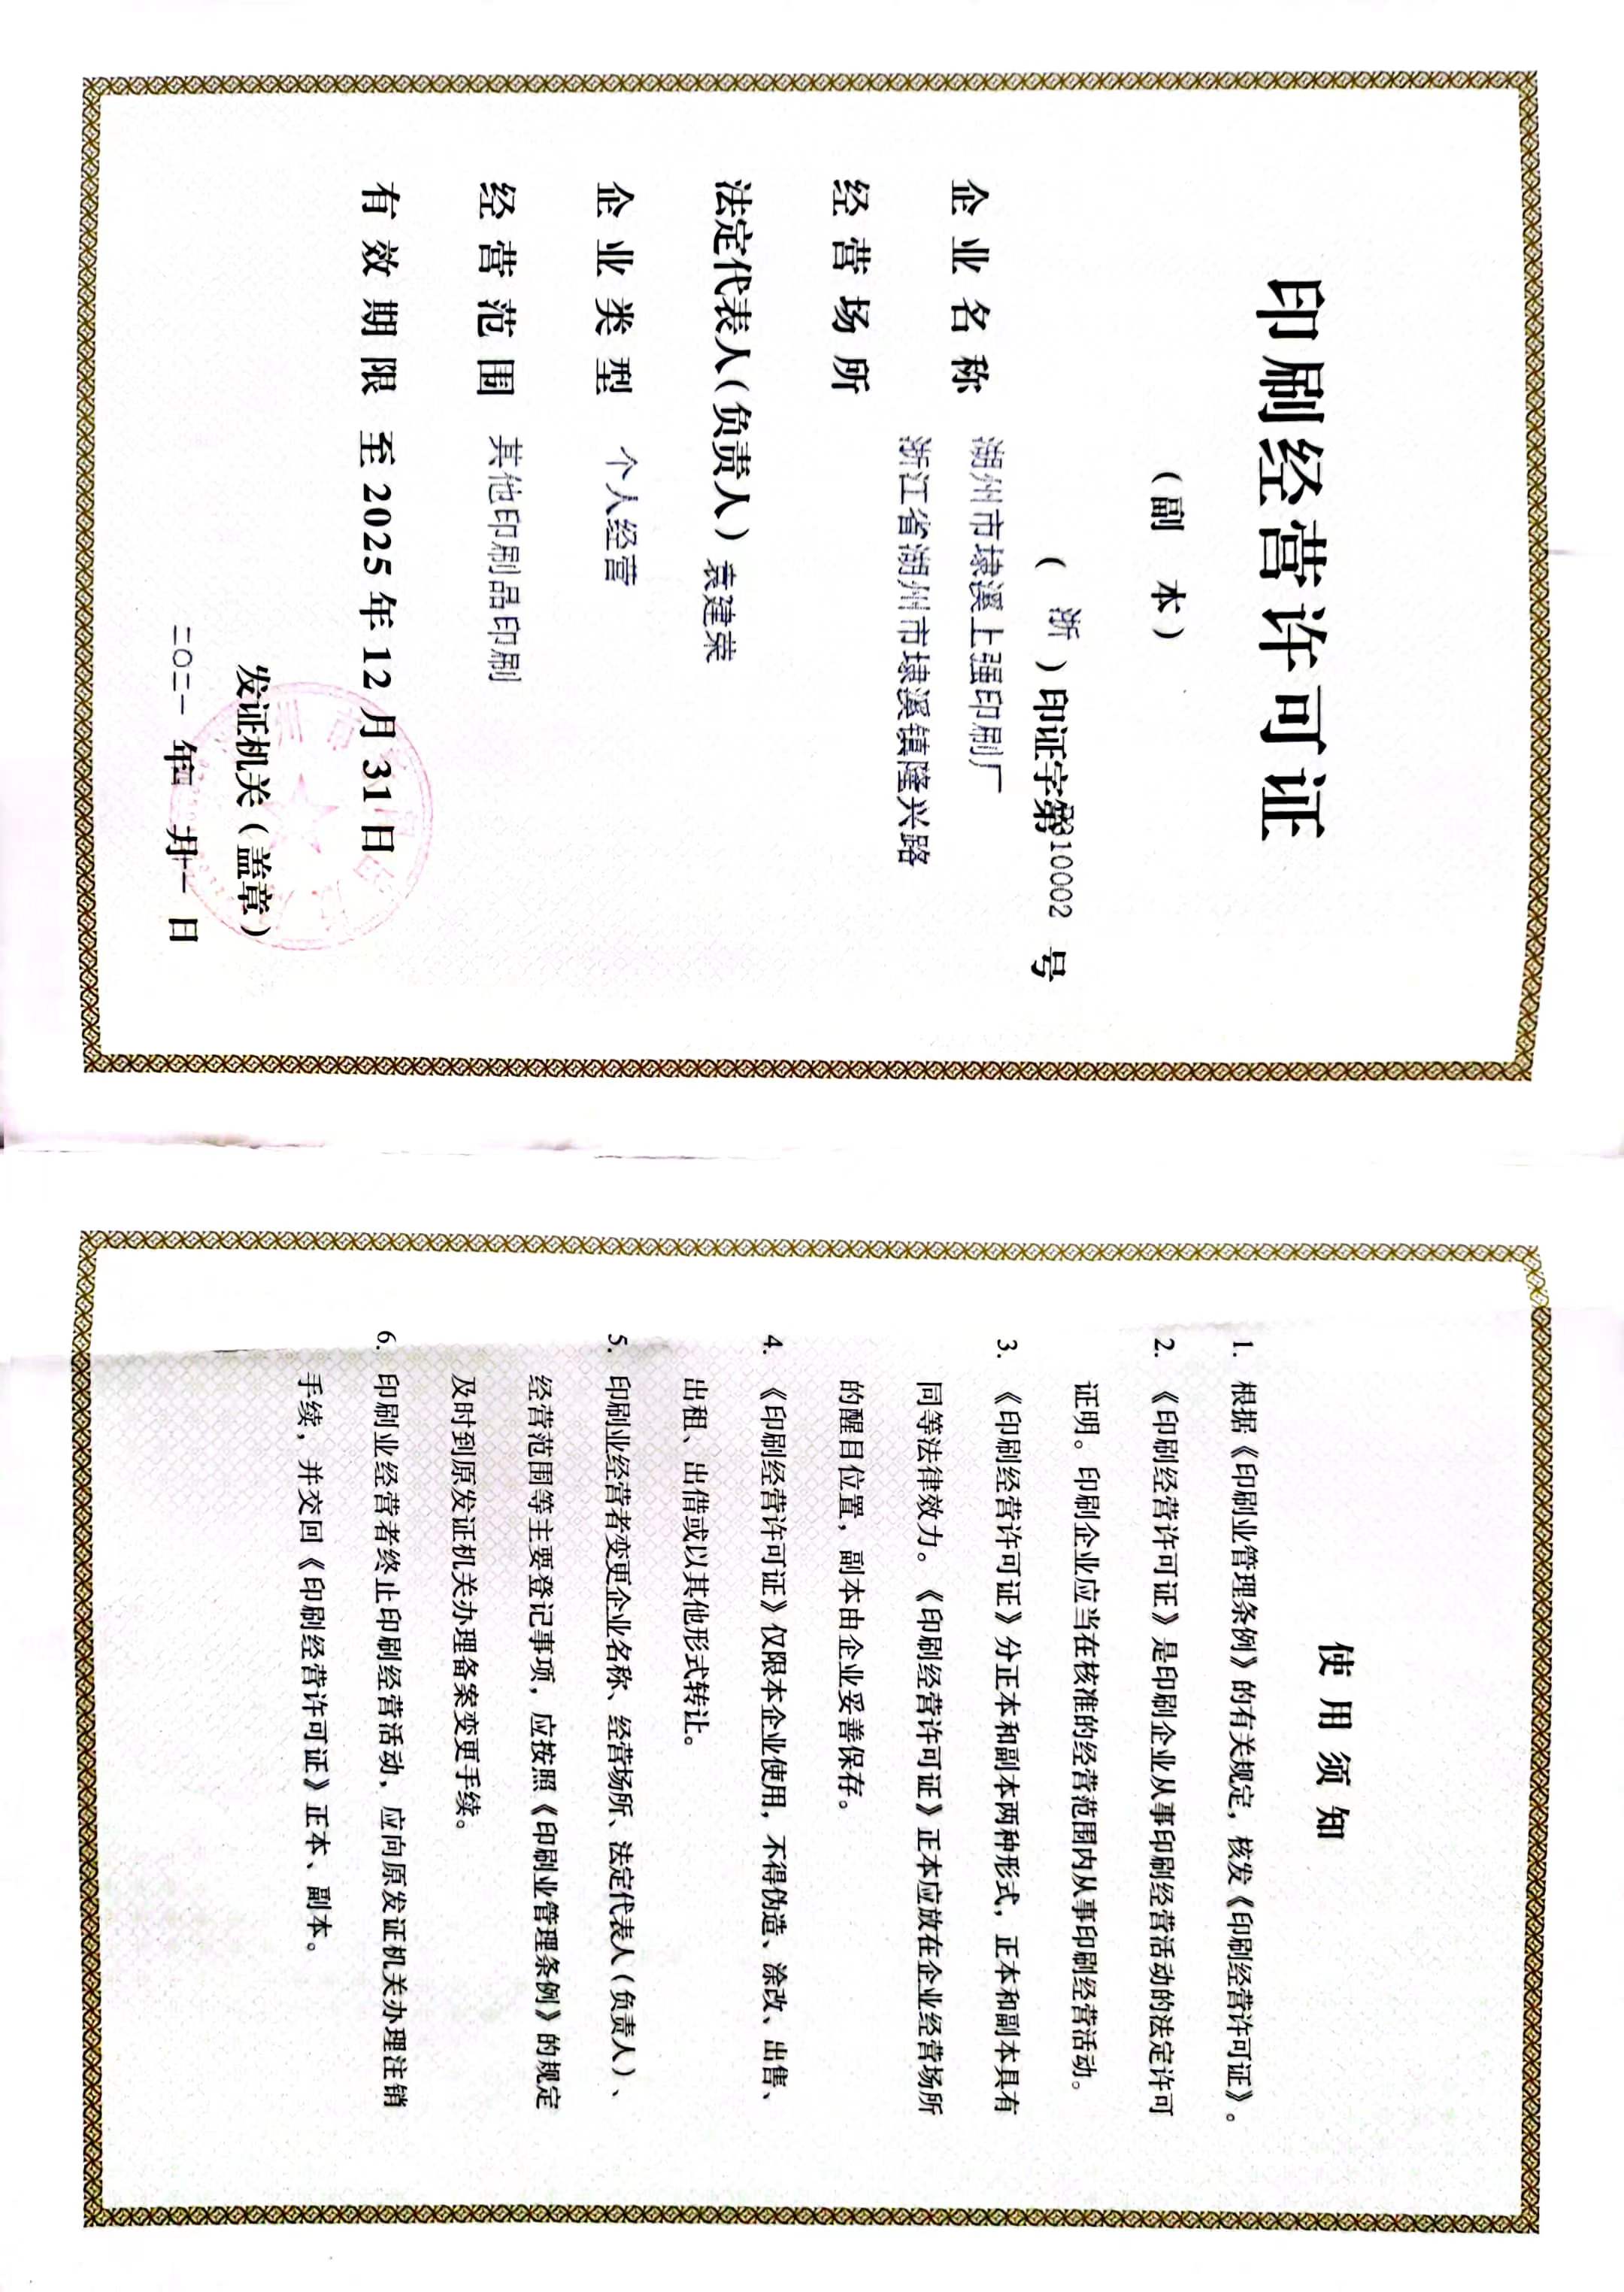 印刷经营许可证
(副 本)
( 浙 ) 印证字第 310002 号
企业名称 湖州市埭溪上强印刷厂
经营场所 浙江省湖州市埭溪镇隆兴路
法定代表人(负责人) 袁建荣
企业类型 个人经营
经营范围 其他印刷品印刷
有效期限 至 2025 年 12 月 31 日
发证机关(盖章)
二〇二一 年 四 月 十一 日
使用须知
1. 根据《印刷业管理条例》的有关规定,核发《印刷经营许可证》。
2. 《印刷经营许可证》是印刷企业从事印刷经营活动的法定许可
证明。印刷企业应当在核准的经营范围内从事印刷经营活动。
3. 《印刷经营许可证》分正本和副本两种形式,正本和副本具有
同等法律效力。《印刷经营许可证》正本应放在企业经营场所
的醒目位置,副本由企业妥善保存。
4. 《印刷经营许可证》仅限本企业使用,不得伪造、涂改、出售、
出租、出借或以其他形式转让。
5. 印刷业经营者变更企业名称、经营场所、法定代表人(负责人)、
经营范围等主要登记事项,应按照《印刷业管理条例》的规定
及时到原发证机关办理备案变更手续。
6. 印刷业经营者终止印刷经营活动,应向原发证机关办理注销
手续,并交回《印刷经营许可证》正本、副本。